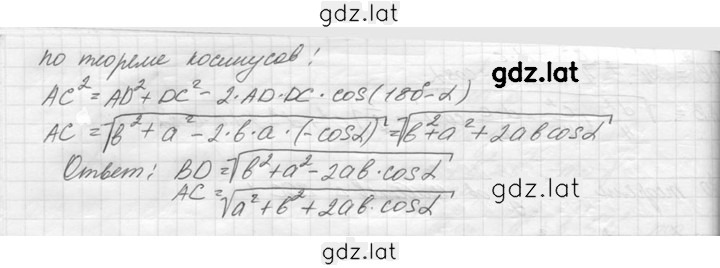 gdz.lat
по теореме косинусов:
gdz.lat
AC² = AD² + DC² - 2·AD·DC·cos(180°-α)
AC = √(b² + a² - 2·b·a·(-cosα)) = √(b² + a² + 2ab cosα)
Ответ: BD = √(b² + a² - 2ab·cosα)
AC = √(a² + b² + 2ab·cosα)
gdz.lat
gdz.lat